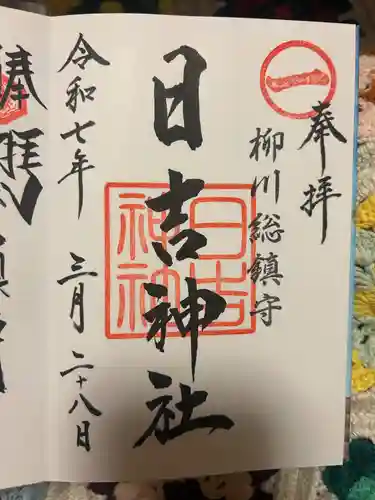 奉拝
柳川総鎮守
一
日吉神社
日吉神社
令和七年 三月二十八日
奉拝